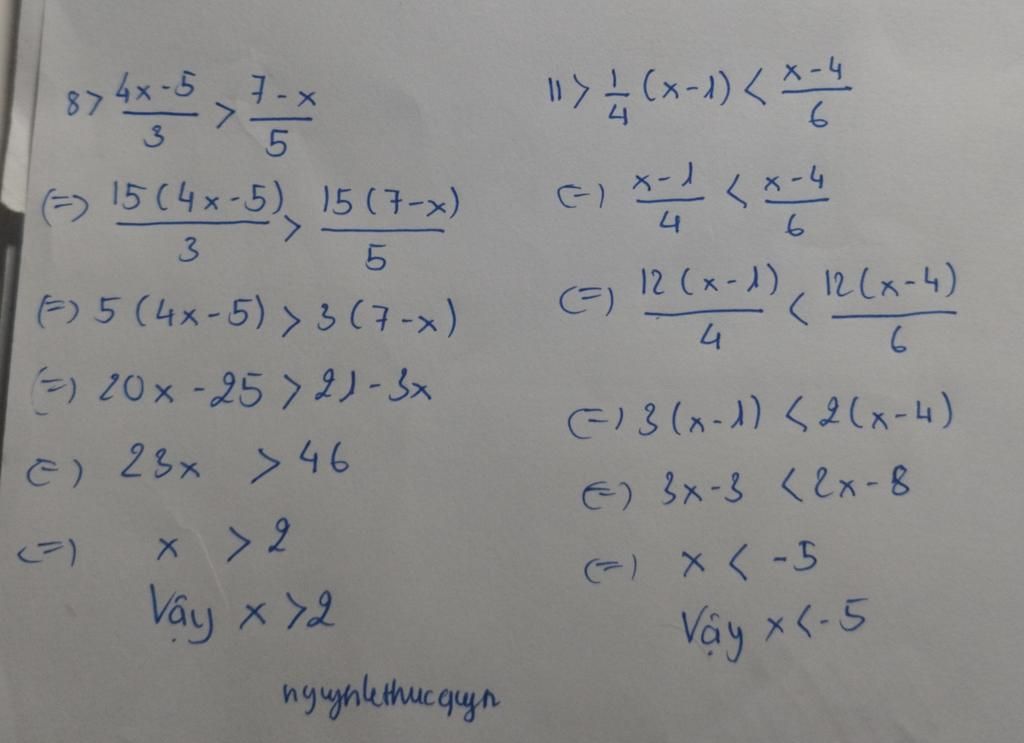 8> (4x-5)/3 > (7-x)/5
(=> 15(4x-5)/3 > 15(7-x)/5
(=) 5(4x-5) > 3(7-x)
(=) 20x-25 > 21-3x
(=) 23x > 46
(=) x > 2
Vậy x >2
11> 1/4 (x-1) < (x-4)/6
(=) (x-1)/4 < (x-4)/6
(=) 12(x-1)/4 < 12(x-4)/6
(=) 3(x-1) < 2(x-4)
(=) 3x-3 < 2x-8
(=) x < -5
Vậy x < -5